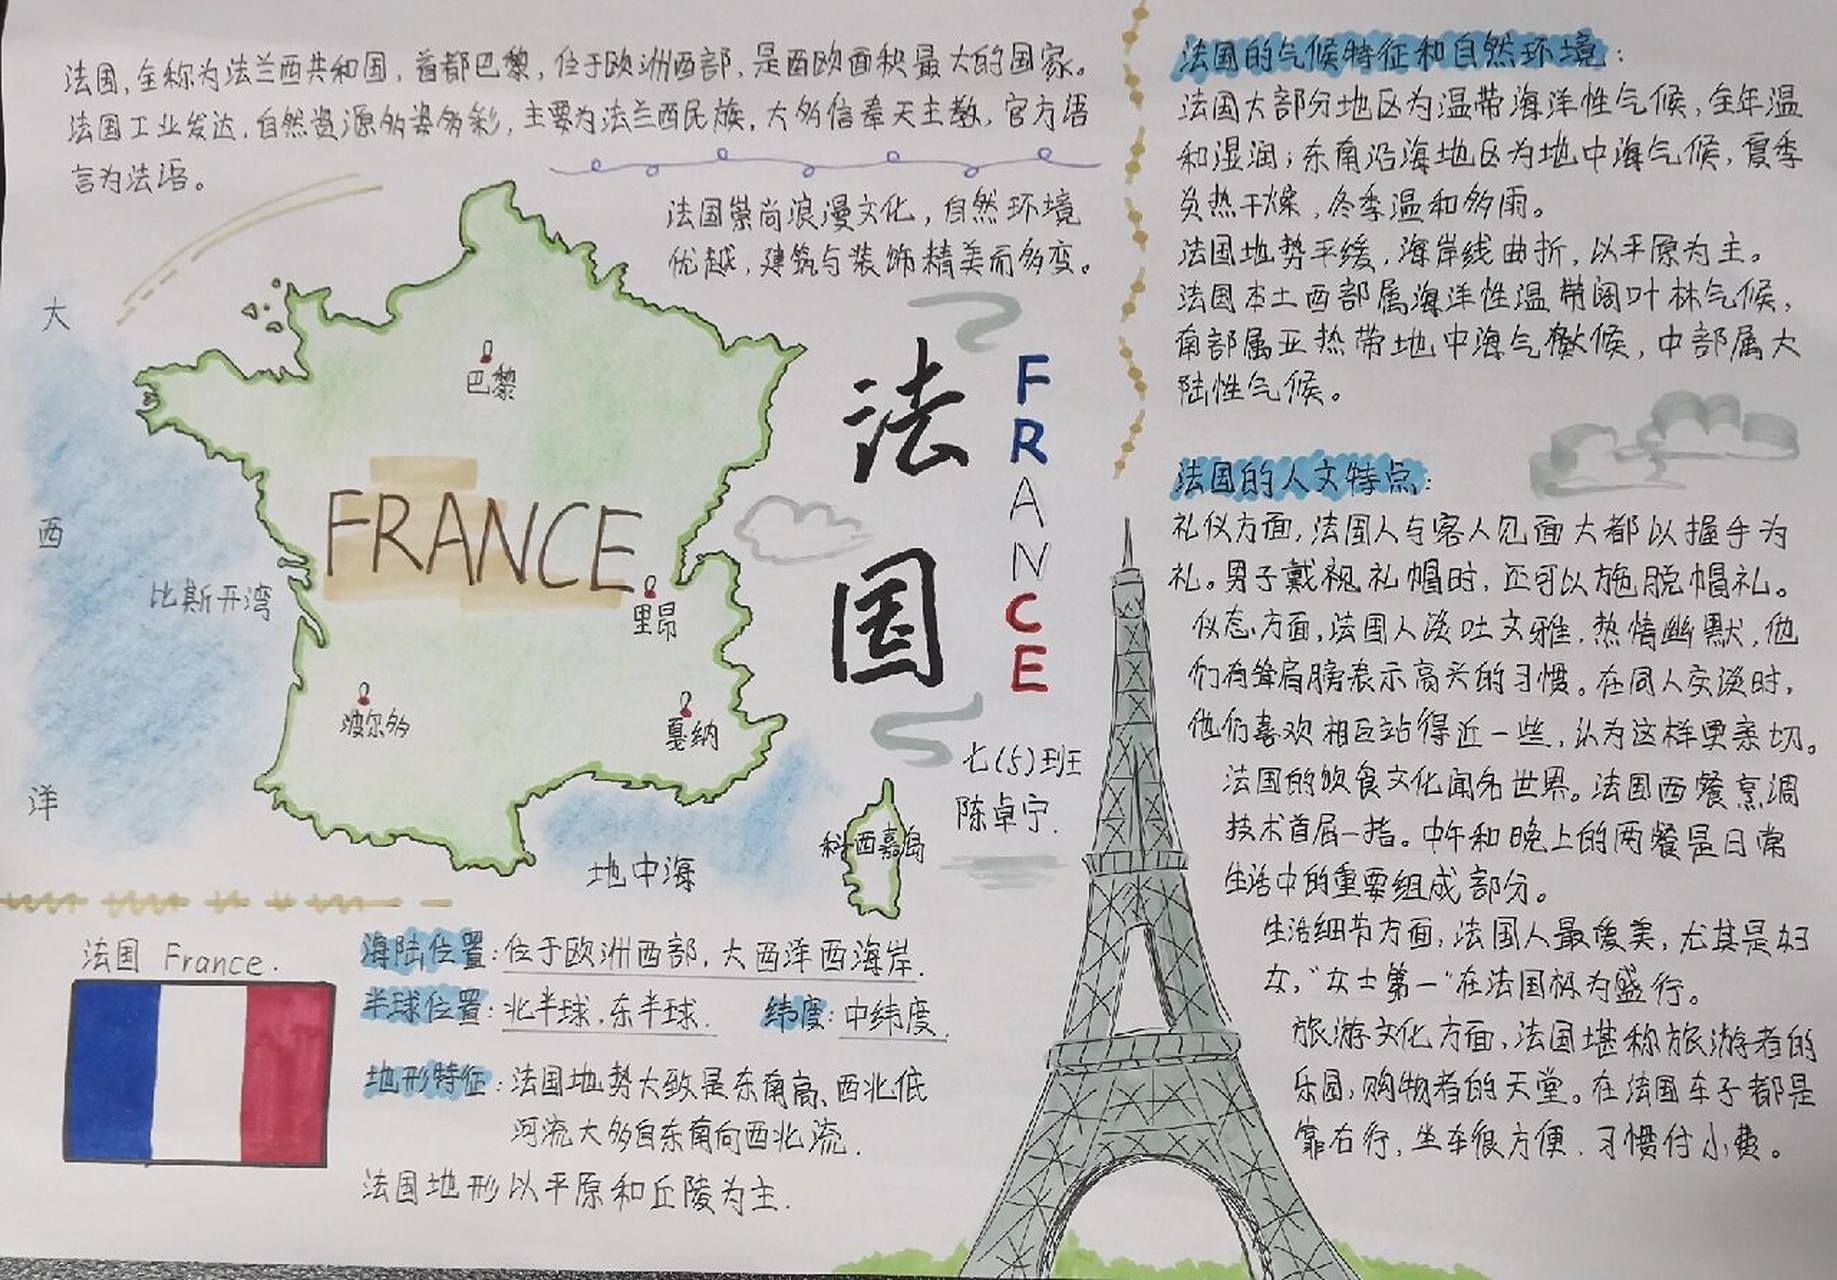 法国,全称为法兰西共和国,首都巴黎,位于欧洲西部,是西欧面积最大的国家。
法国工业发达,自然资源多姿多彩,主要为法兰西民族,大多信奉天主教,官方语
言为法语。
法国崇尚浪漫文化,自然环境
优越,建筑与装饰精美而多变。
大
西
洋
比斯开湾
巴黎
FRANCE
里昂
波尔多
戛纳
地中海
科西嘉岛
法
国
FRANCE
七(5)班
陈卓宁.
法国 France.
海陆位置:位于欧洲西部,大西洋西海岸.
半球位置:北半球,东半球. 纬度:中纬度.
地形特征:法国地势大致是东南高、西北低
河流大多自东南向西北流.
法国地形以平原和丘陵为主.
法国的气候特征和自然环境:
法国大部分地区为温带海洋性气候,全年温
和湿润;东南沿海地区为地中海气候,夏季
炎热干燥,冬季温和多雨。
法国地势平缓,海岸线曲折,以平原为主。
法国本土西部属海洋性温带阔叶林气候,
南部属亚热带地中海气候,中部属大
陆性气候。
法国的人文特点:
礼仪方面,法国人与客人见面大都以握手为
礼。男子戴视礼帽时,还可以施脱帽礼。
仪态方面,法国人谈吐文雅,热情幽默,他
们有耸肩膀表示高兴的习惯。在同人交谈时,
他们喜欢相互站得近一些,认为这样更亲切。
法国的饮食文化闻名世界。法国西餐烹调
技术首屈一指。中午和晚上的两餐是日常
生活中的重要组成部分。
生活细节方面,法国人最爱美,尤其是妇
女,“女士第一”在法国极为盛行。
旅游文化方面,法国堪称旅游者的
乐园,购物者的天堂。在法国车子都是
靠右行,坐车很方便,习惯付小费。